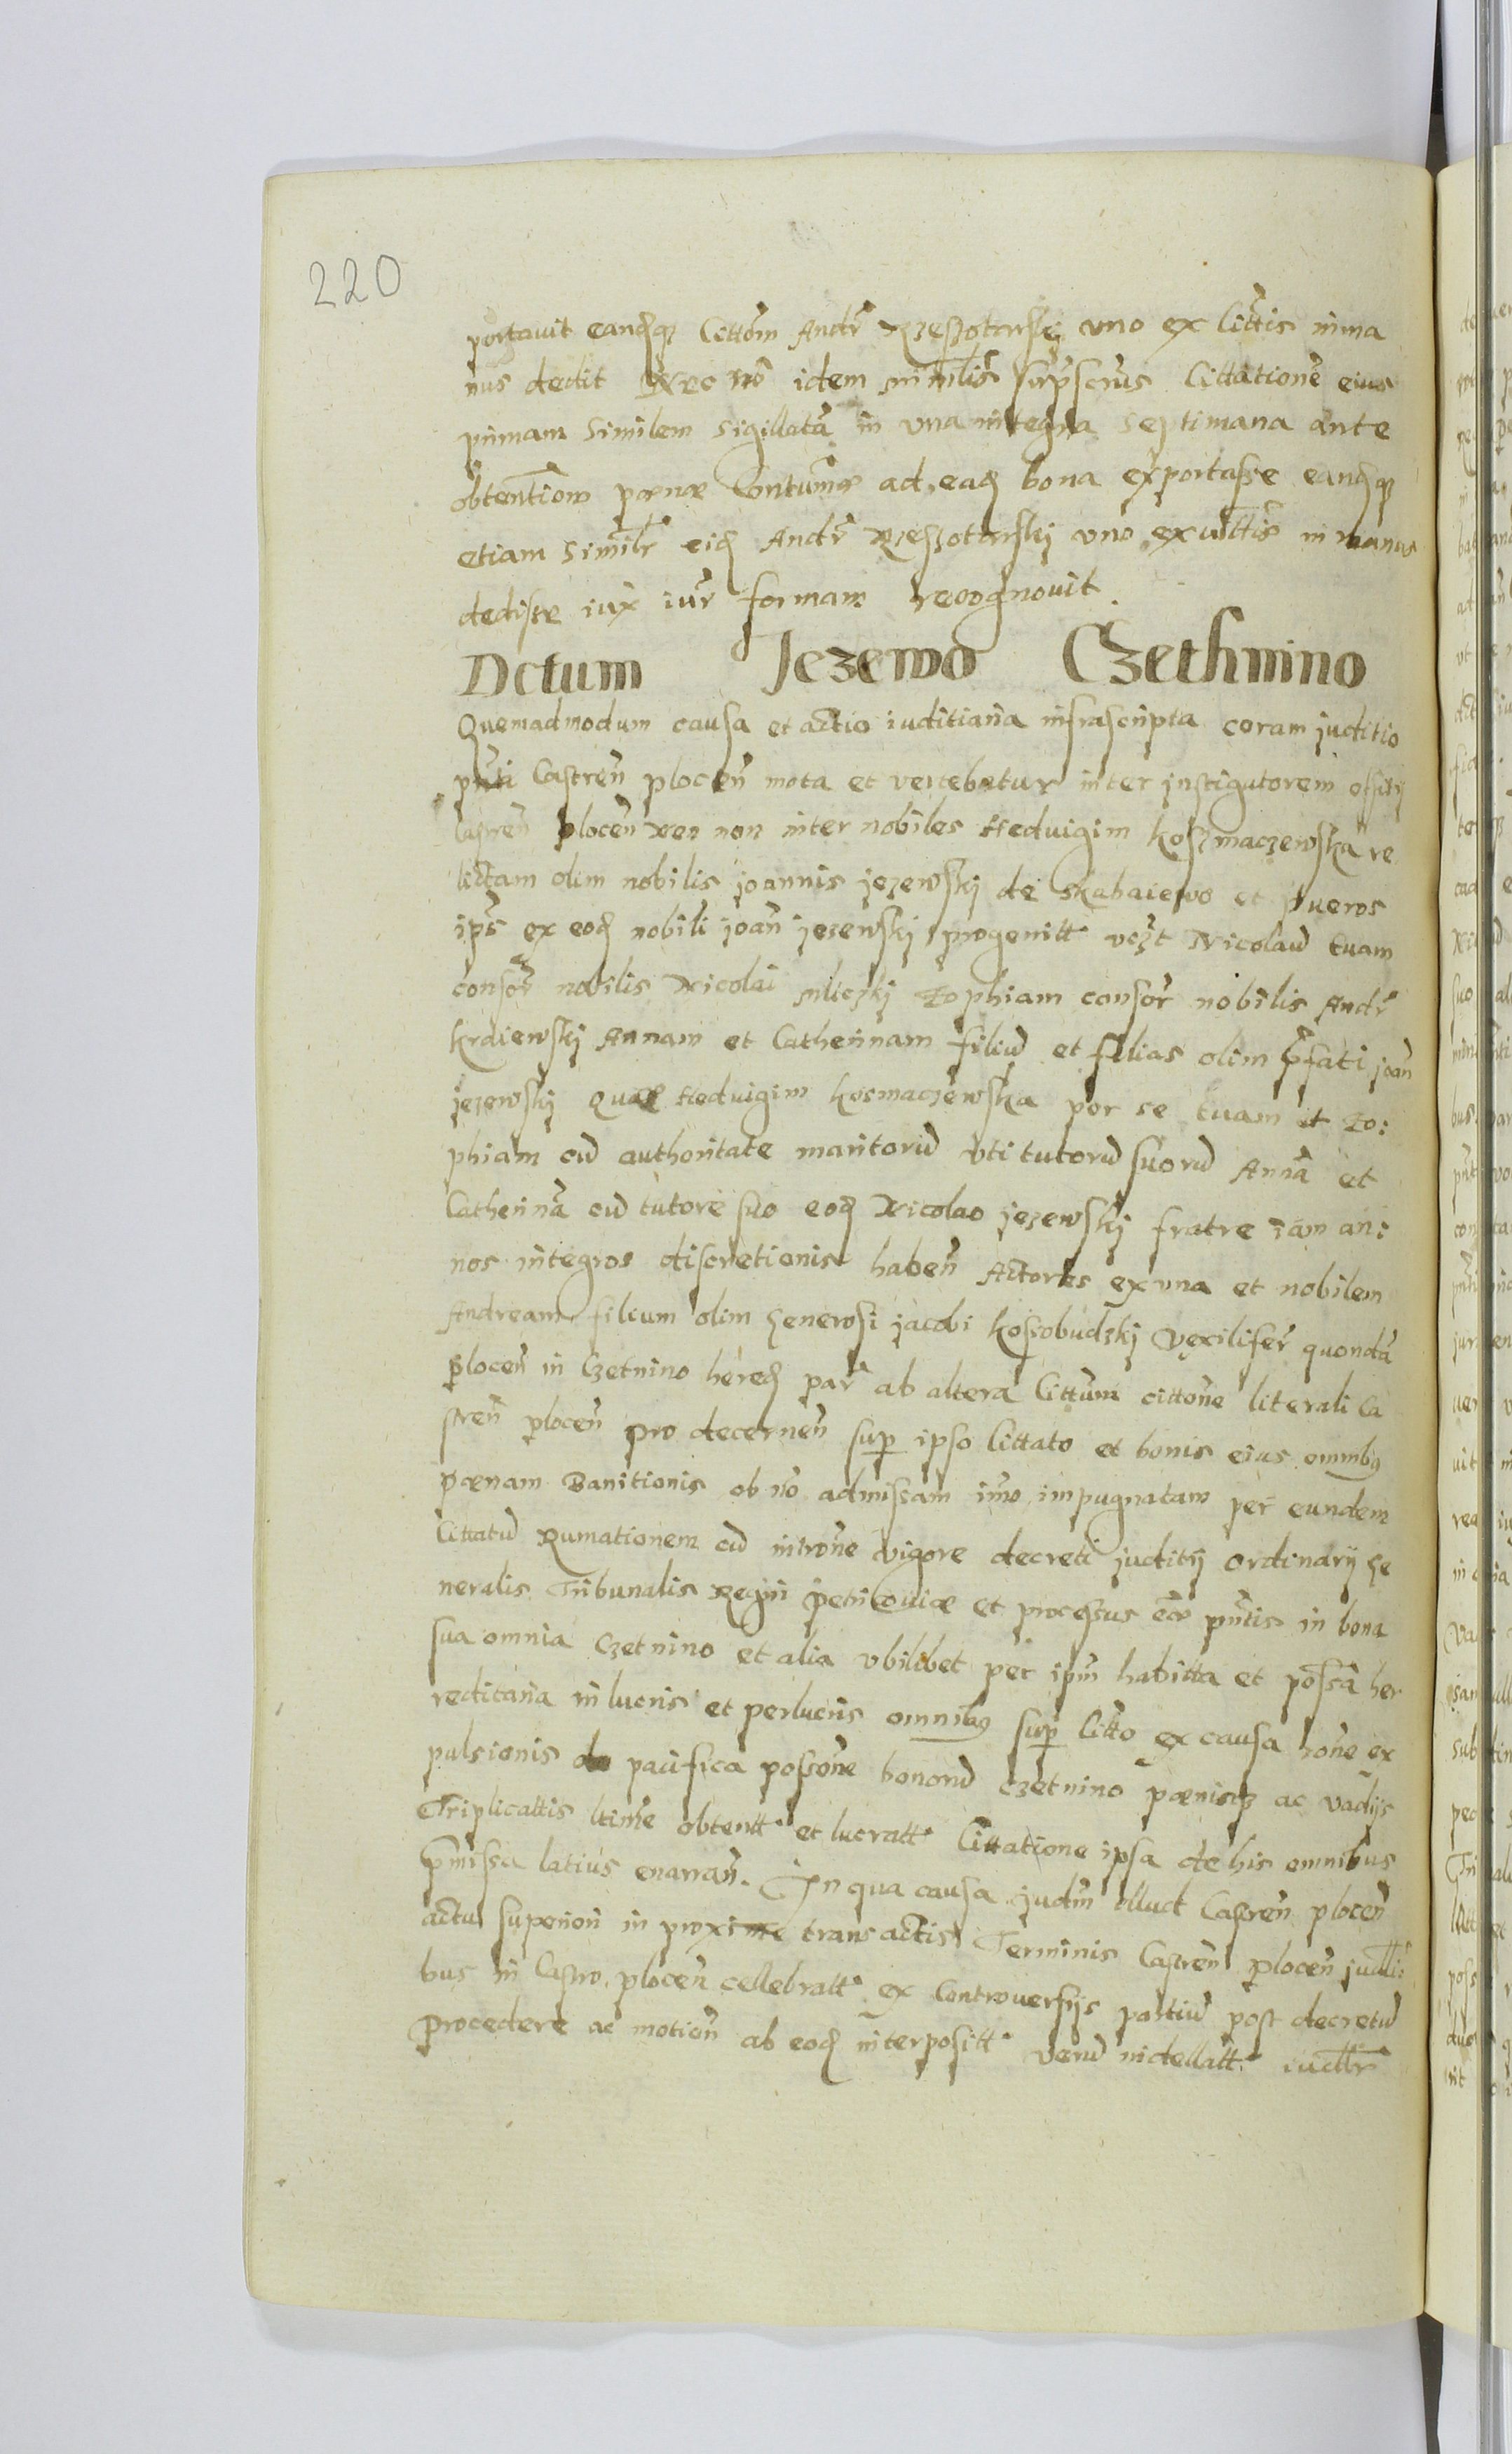 220
portauit eandqz Cittõm Andr̃ Rzeszotarskj vno ex Citttis in ma
nus dedit Nec nõ idem mi̅nlis sup̃scrus Cittationẽ eius
primam similem sigillatã in vna integra septimana ante
obtentionẽ pœnæ Contumæ ad ead bona exportasse eandqz
etiam simil̃r eid Andr̃ Rzeszotarskj vno ex citttis in manus
dedisse iux iur̃ formam recognouit.
Dctum Jezewo Czethnino
Quemadmodum causa et actio iuditiaria infrascripta coram juditio
pñti Castreñ ploceñ mota et vertebatur inter jnstigatorem officij
Castreñ ploceñ nec non inter nobiles Heduigim Koszmaczewskã re
lictam olim nobilis joannis jezewskj de Skabaiewo et pueros
ips̃ ex eod nobili joañ jezewskj progenitt vczt Nicolaũ Euam
consor̃ nobilis Nicolai mliczkj Zophiam consor̃ nobilis Andr̃
Kraiewskj Annam et Catherinam filiũ et filias olim p̃fati joañ
jezewskj Quæ Heduigim Kosmaczewska por se Euam et Zo:
phiam cũ authoritate maritorũ vti tutorũ suorũ Annã et
Catherinã cũ tutore suo eod Nicolao jezewskj fratre iam an:
nos integros discretionis habeñ Actores ex vna et nobilem
Andream filium olim Generosi jacobi Kossobudzkj Vexilifer̃ quondã
ploceñ in Czetnino hered par̃ ab altera Cittum cittone literali Ca
streñ ploceñ pro decerneñ sup ipso Cittato et bonis eius omnibg
pœnam Banitionis ob nõ admissam imo impugnatam per eundem
Cittatũ Rumationem cũ intrõne vigore decreti juditij ordinarij Ge
neralis Tribunalis Regni petricouiæ et processus eõr pñtis in bona
sua omnia Czetnino et alia vbilibet per ipm habitta et possa her
reditaria in lucris et perlucris omnibg sup Citto ex causa hõne ex
pulsionis de pacifica possõne bonorũ Czetnino pœnisqz ac vadijs
Triplicattis ltime obtentt et lucratt Cittatione ipsa de his omnibus
p̃missa latius enarrañ. In qua causa judm illud Castreñ ploceñ
actu superiori in proxime transactis Terminis Castreñ ploceñ judlli:
bus in Castro ploceñ cellebratt ex Controuersijs partiũ post decretũ
procedere ac motioñ ab eod interpositt verũ nidellatt iudllr̃